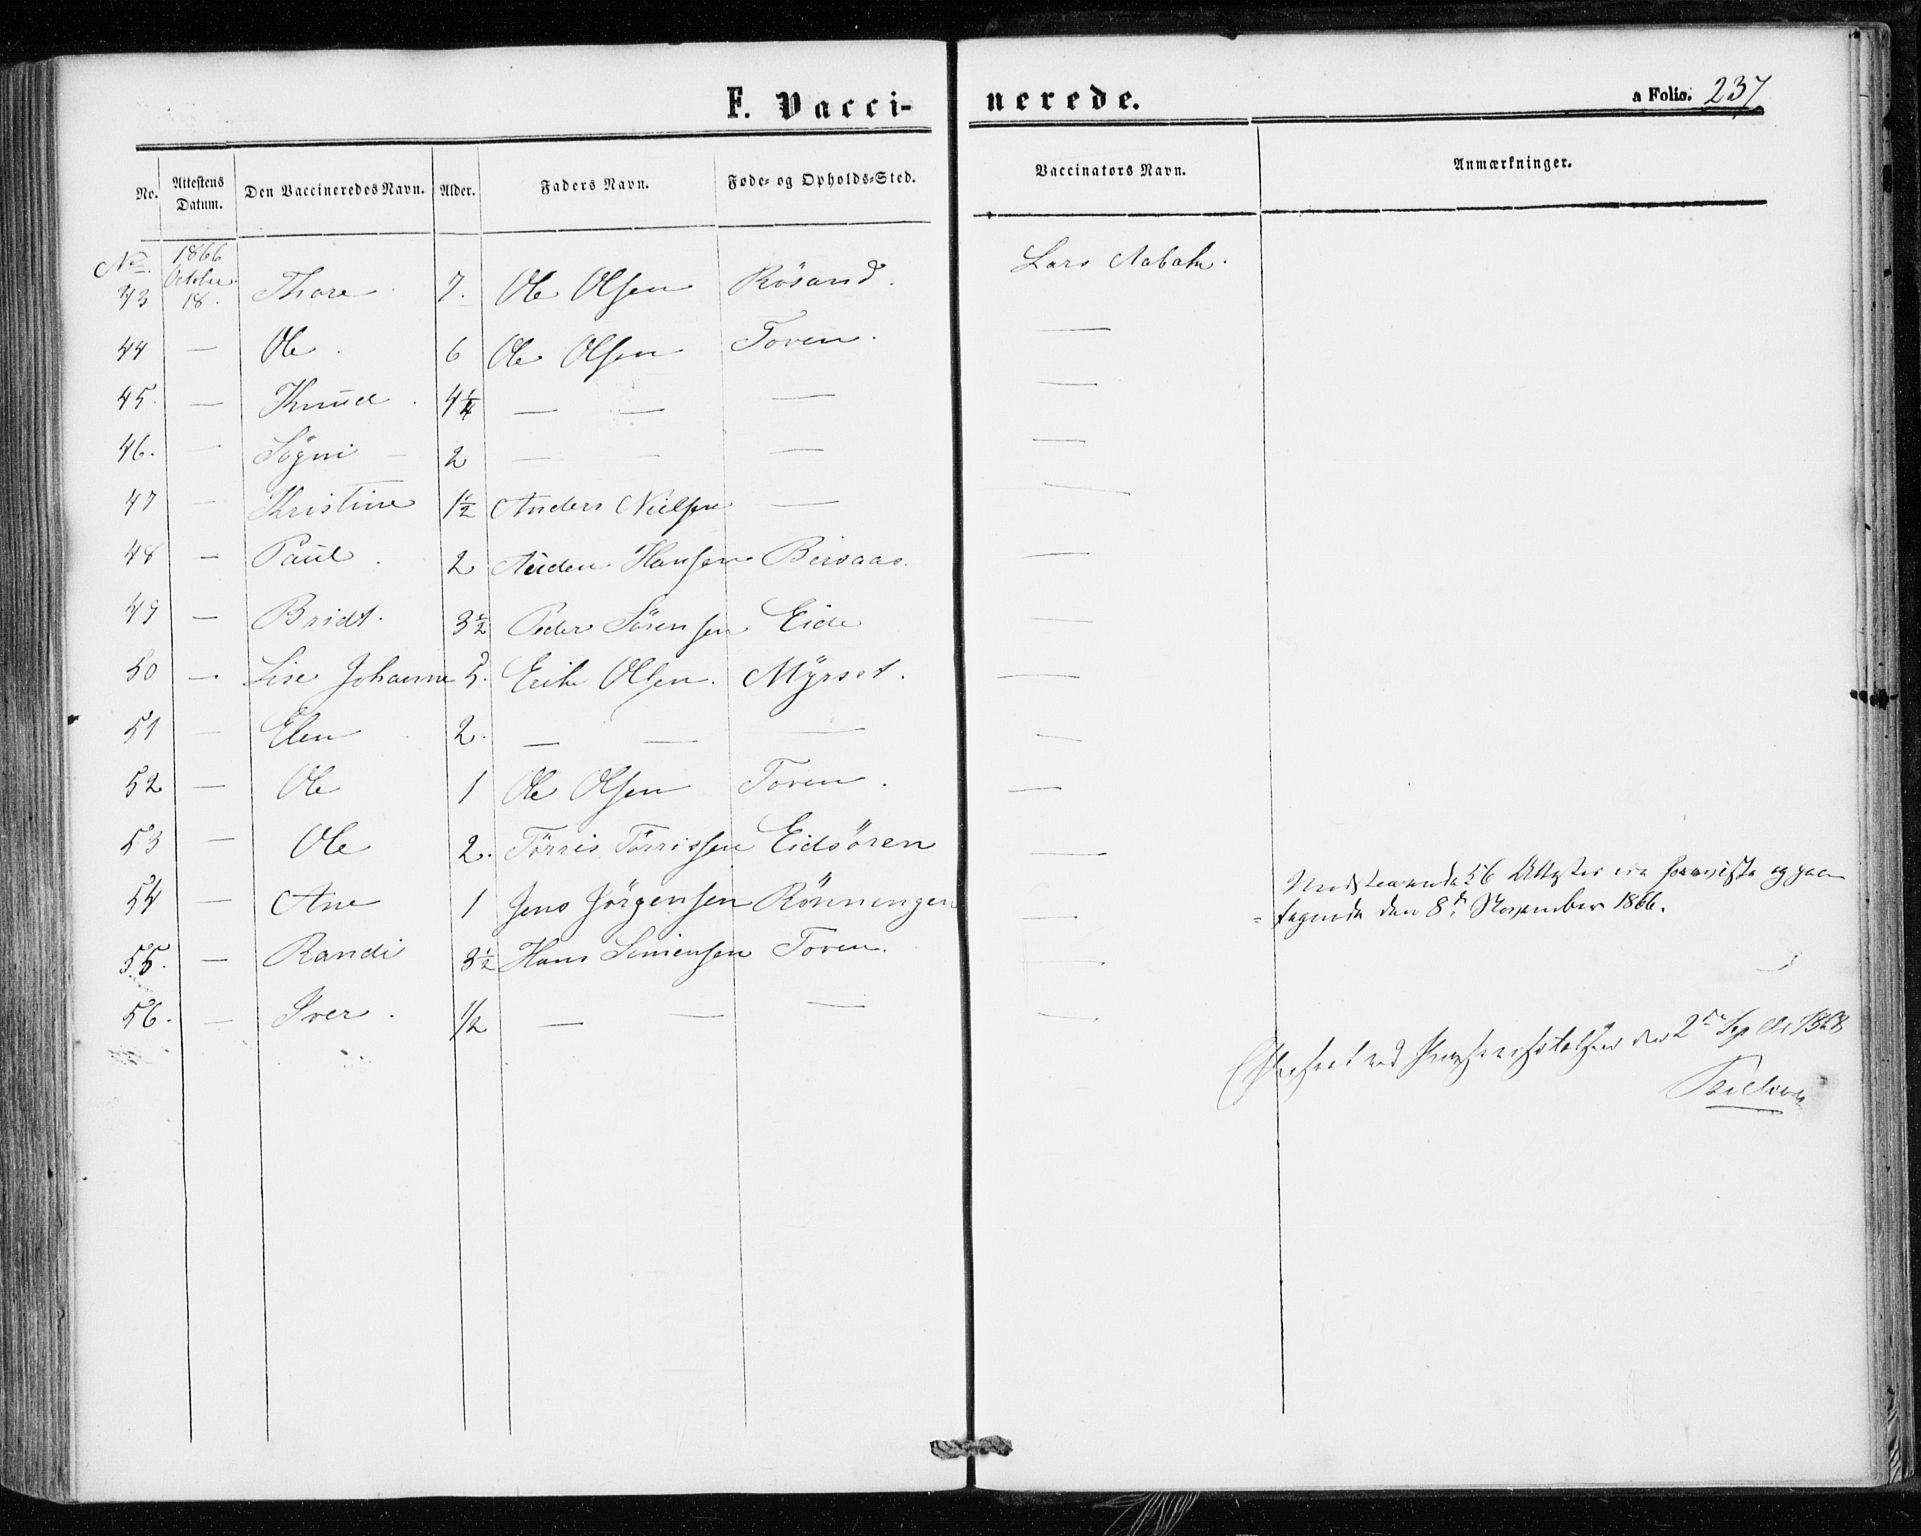 F. Vacci-nerede.
a Folio. 237
No. Attestens Datum. Den Vaccineredes Navn. Alder. Faders Navn. Føde- og Opholds-Sted. Vaccinators Navn. Anmærkninger.
No. 1866 October
43 18. Thore. 7. Ole Olsen Rösand. Lars Aabak.
44 — Ole. 6 Ole Olsen Toven. —
45. — Knud. 4 1/4 — — — —
46. — Sögni — 2 — — — —
47 — Kristine 1 1/2 Anders Nielsen — —
48 — Paul. 2 Auden Hansen Beisaas. —
49 — Bridt. 3 1/2 Peder Sörensen Eide —
50 — Lise Johanne 5. Erik Olsen. Mÿrset. —
51 — Elen. 2. — — — —
52 — Ole 1 Ole Olsen Toven. —
53 — Ole 2. Törris Törrissen Eidsören —
54 — Ane 1 Jens Jörgensen Rönningen —
55. — Randi 3 1/2 Hans Simensen Toven. —
56. — Iver. 1/2 — — — —
56 Attester ere foreviste og paa-
tegnede den 8de November 1866.
ved den 2den Sept 1868